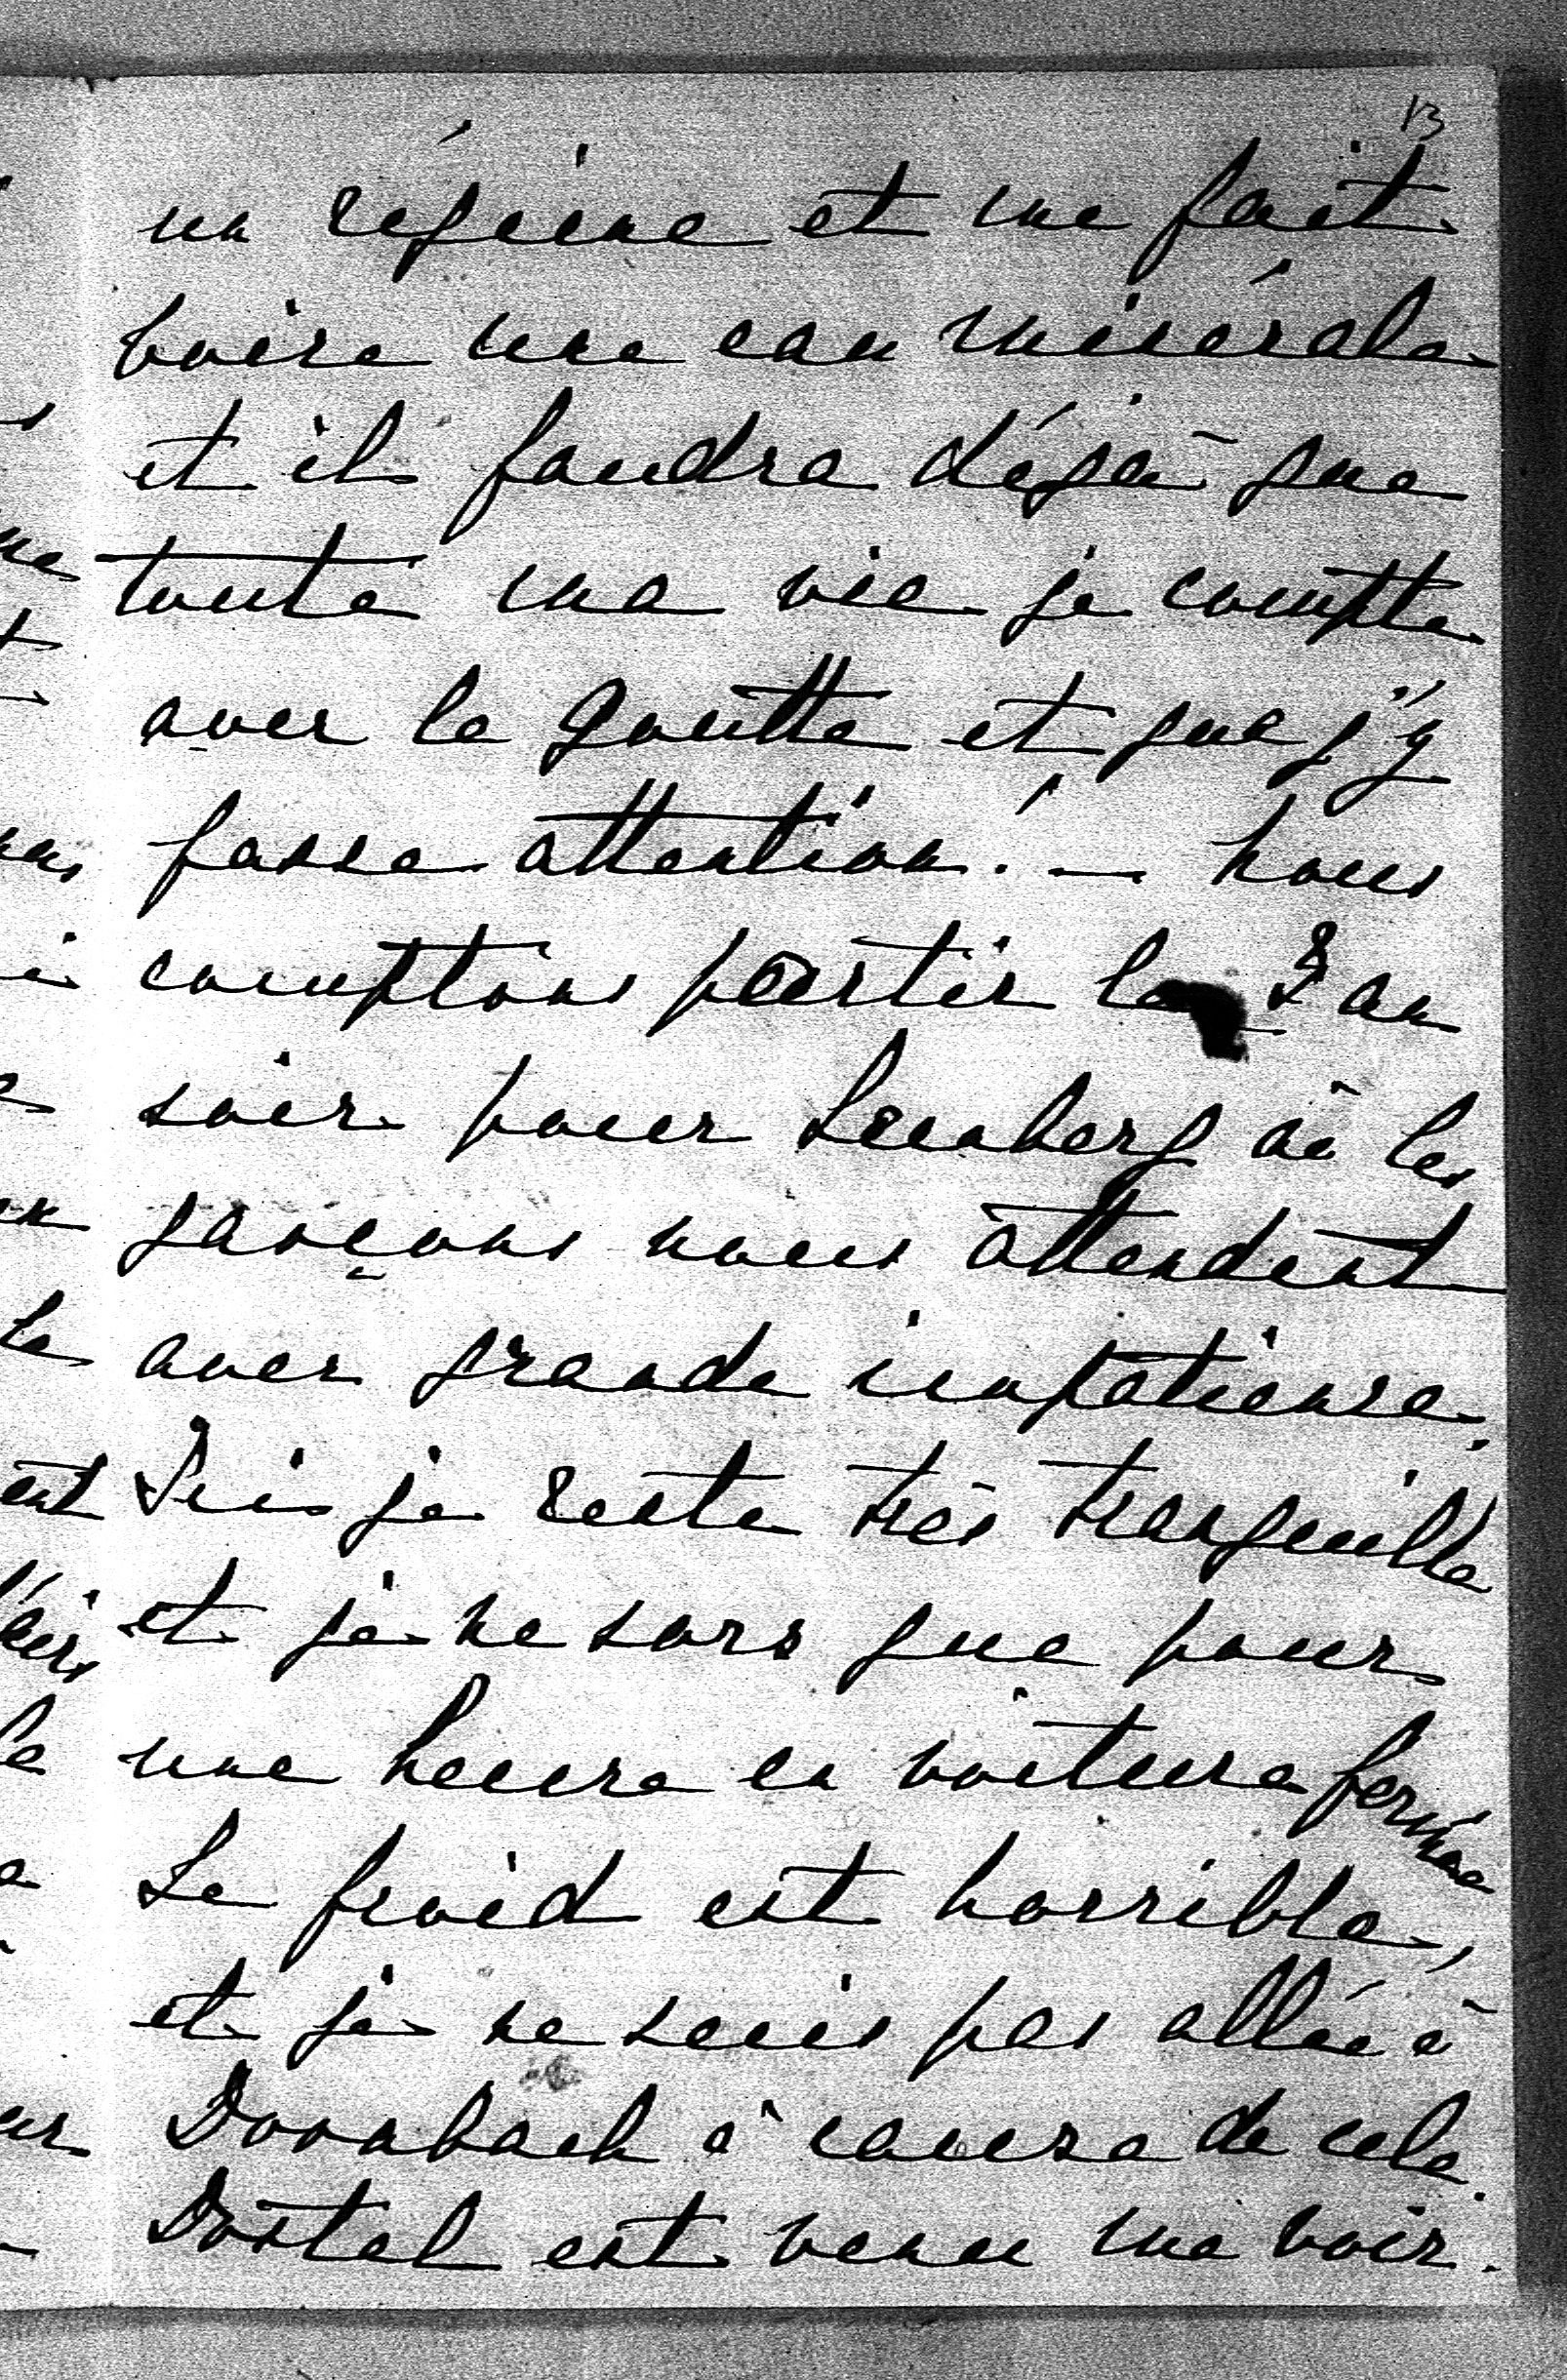 13
un régime et me fait
boire une eau minérale
et il faudra déjà que
toute ma vie je compte
avec la goutte et que j'y
fasse attention! — Nous
comptons partir le 8 au
soir pour Lemberg où les
garçons nous attendent
avec grande impatience.
Ici je reste très tranquille
et je ne sors que pour
une heure en voiture fermée
Le froid est horrible,
et je ne suis pas allée à
Dornbach à cause de cela.
Dostal est venu me voir.